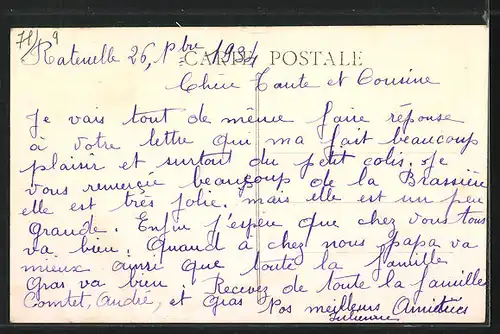 71/9
Ratenelle 26, 9bre 1934
CARTE POSTALE
Chère Tante et Cousine
Je vais tout de même faire réponse
à votre lettre qui ma fait beaucoup
plaisir et surtout du petit colis. Je
vous remercie beaucoup de la Brassière
elle est très jolie. mais elle est un peu
grande. Enfin j'espère que chez vous tous
va bien. Quand à chez nous papa va
mieux ainsi que toute la famille
Gras va bien. Recevez de toute la familles
Comtet, André, et Gras Nos meilleurs Amitiées